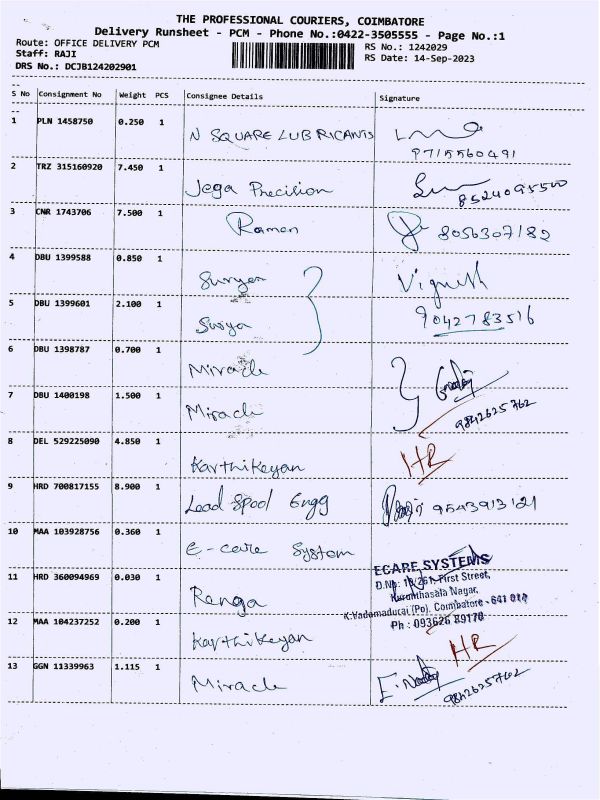 THE PROFESSIONAL COURIERS, COIMBATORE
Delivery Runsheet - PCM - Phone No.:0422-3505555 - Page No.:1
Route: OFFICE DELIVERY PCM RS No.: 1242029
Staff: RAJI RS Date: 14-Sep-2023
DRS No.: DCJB124202901
S No Consignment No Weight PCS Consignee Details Signature
1 PLN 1458750 0.250 1 N SQUARE LUBRICANTS
9715560491
2 TRZ 315160920 7.450 1 Jega Precision 8524095500
3 CNR 1743706 7.500 1 Raman 8056307182
4 DBU 1399588 0.850 1 Surya Vignesh
5 DBU 1399601 2.100 1 Surya 9042783516
6 DBU 1398787 0.700 1 Miracle
7 DBU 1400198 1.500 1 Miracle 9842625762
8 DEL 529225090 4.850 1 Karthikeyan HR
9 HRD 700817155 8.900 1 Lead Spool Engg 9543913121
10 MAA 103928756 0.360 1 E-care System
ECARE SYSTEMS
D.No: 18/261, First Street,
Kurumthasala Nagar,
K.Vadamadurai (Po), Coimbatore - 641 017
Ph : 093626 89170
11 HRD 360094969 0.030 1 Renga
12 MAA 104237252 0.200 1 Karthikeyan HR
13 GGN 11339963 1.115 1 Miracle 9842625762